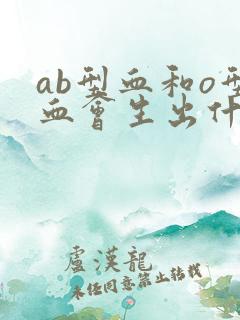 ab型血和o型
血會生出什
盧漢龍
未经同意禁止转载